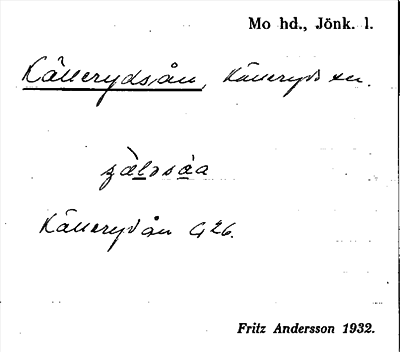 Mo hd., Jönk. l.
Källerydsån, Källeryds sn.
Källerydån G 26.
Fritz Andersson 1932.